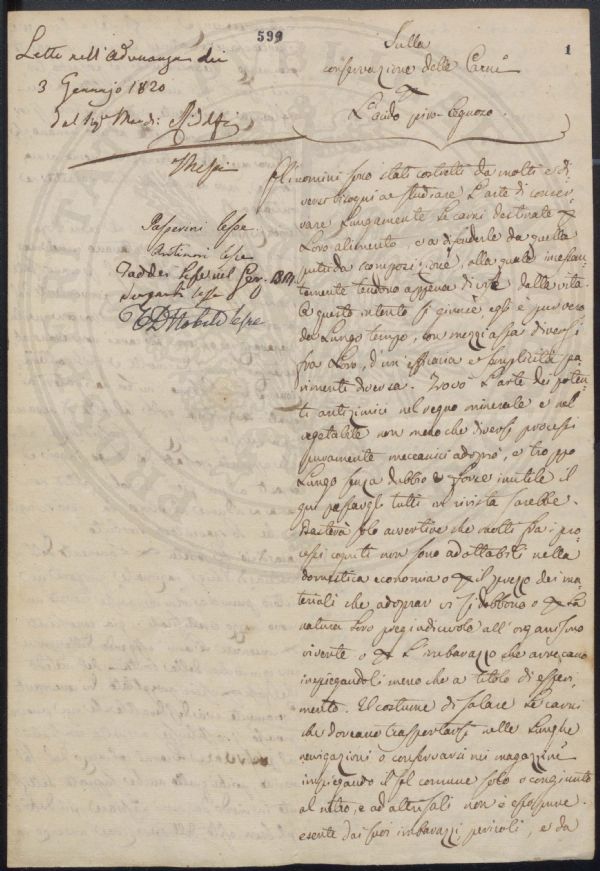 599
1
Letta nell'Adunanza dei
3 Gennajo 1820
Dal Sig.
Sulla
conservazione delle Carni
L'acido piro-legnoso.
Passerini lesse
Antinori lesse
Taddei lesse nel Gen.
lesse
lesse
Gli uomini sono stati costretti da molti e di-
versi bisogni a studiare l'arte di conser-
vare lungamente le carni destinate
loro alimento, e a difenderle da quella
putrida composizione, alla quale incessan-
temente tendono appena di vita.
A questo intento si giunse, egli è pur vero
da lungo tempo, con mezzi assai diversi
fra loro, d'un'efficacia e semplicità pa-
rimenti diversa. Trovò l'arte dei poten-
ti antizimici nel regno minerale e nel
vegetabile non meno che diversi processi
puramente meccanici adoprò, e troppo
lungo senza dubbio e forse inutile il
qui passargli tutti in rivista sarebbe.
Basterà solo avvertire che molti fra i pro-
cessi cogniti non sono adottabili nella
domestica economia o il prezzo dei ma-
teriali che adoprar vi si debbono o la
natura loro pregiudicevole all'organismo
vivente o l'imbarazzo che arrecano
impiegandoli meno che a titolo di esperi-
mento. Il costume di salare le carni
che doveano trasportarsi nelle lunghe
navigazioni o conservarsi nei magazzini
impiegando il sal comune solo o congiunto
al nitro, e ad altri sali non è pure
esente dai suoi imbarazzi, pericoli, e da